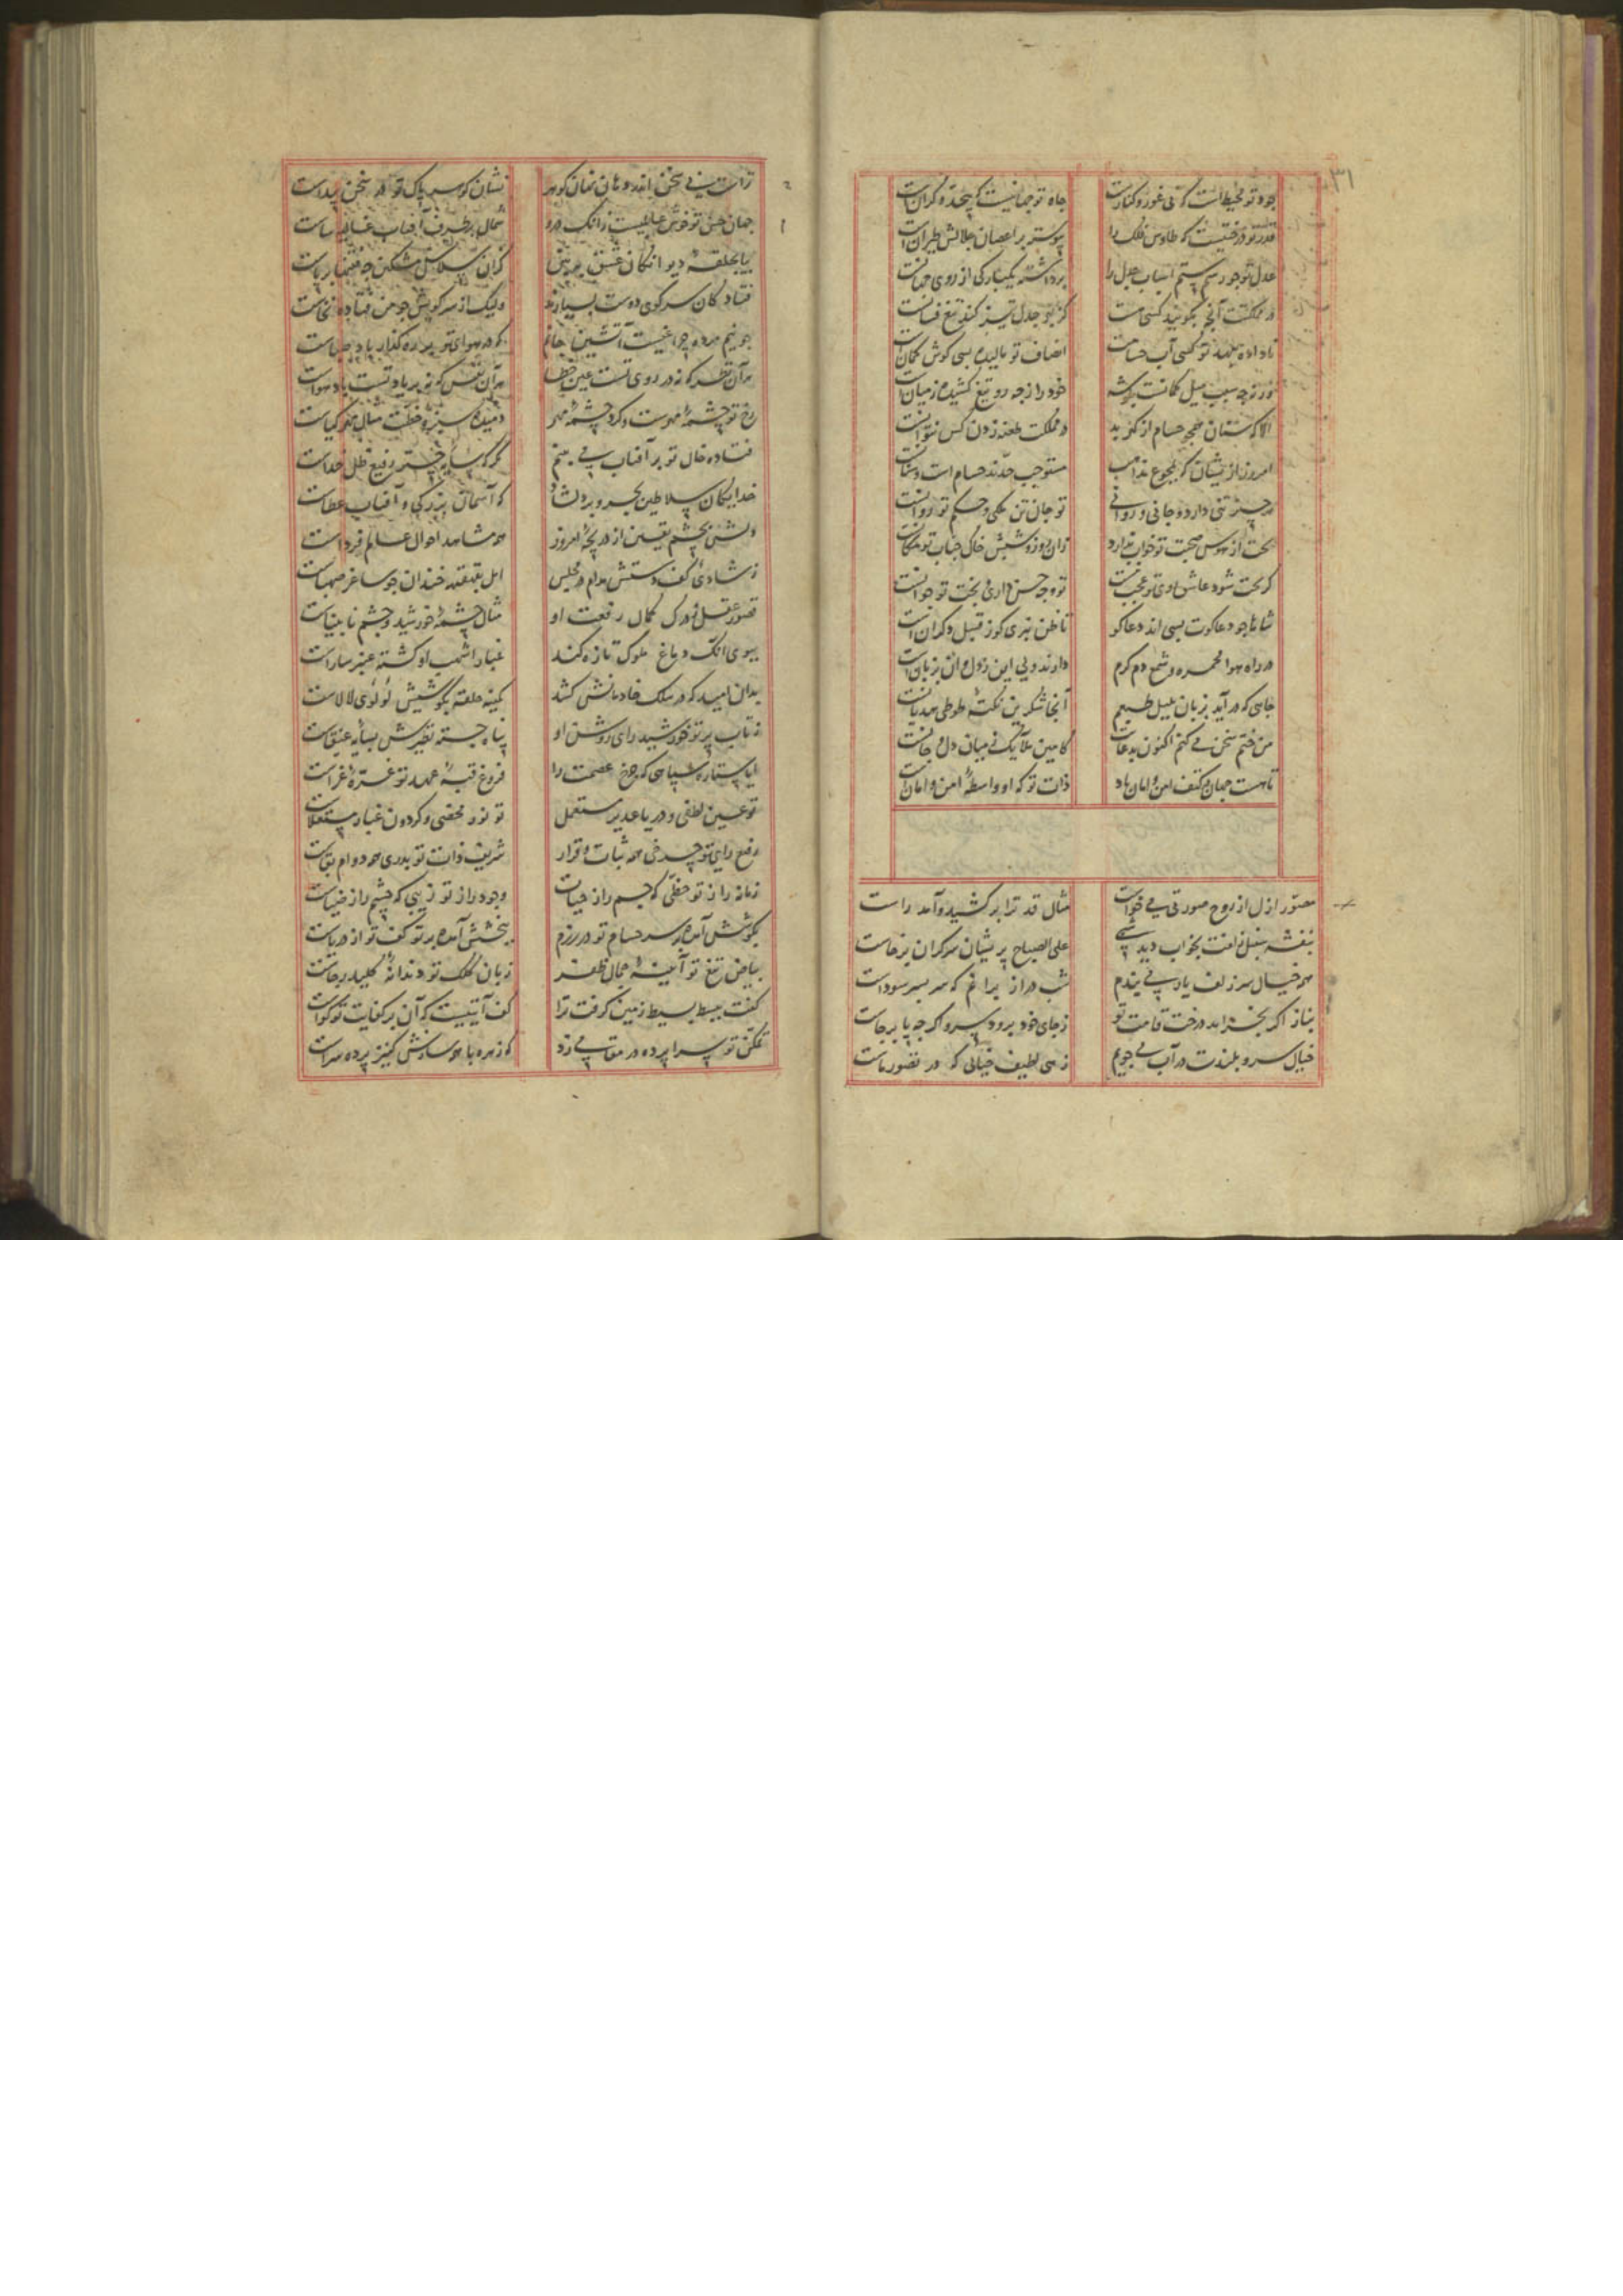 ۳۱
جود تو محیطاست که بی غور و کنارست جاه تو جهانیست که بیحد و کرانست
قدر تو درختیست که طاوس فلک را پیوسته بر اغصان جلالش طیرانست
عدل تو جور ستم اسباب جدل را برداشته یکبارکی از روی جهانست
در مملکتت آنچه بگویند کسی هست کز بهر جدل تیز کند تیغ فسانست
ناداده بعهد تو کسی آب حسامت انصاف تو مالیده بسی کوش کمانست
ورنه چه سبب میل کمانست بکوشه خود را ز چه رو تیغ کشیده ز میانست
الا که سنان خنجر حسام از کهر بد در مملکتت طعنه زدن کس نتوانست
امروز از یشان که بمجموع مذاهب مستوجب حدند حسام است و سنانست
هر چیز تنی دارد و جانی و روانی تو جان تن ملکی و حکم تو روانست
بخت از هوس صحبت تو خواب ندارد زان روز و شبش خاک جناب تو مکانست
کر بخت شود عاشق روی تو عجب نیست تو وجه حسن داری و بخت تو جوانست
شاها چو دعاکوت بسی اند دعاکو تا ظن نبری کو ز قبیل دکرانست
در راه هوا مجمره و شمع دم کرم دارند ولی این ز دل و آن ز زبانست
جایی که در آید بزبان بلبل طبعم آنجا شکرین نکته طوطی هذیانست
من ختم سخن می کنم اکنون بدعات کامین ملایک ز میان دل و جانست
تا هست جهان در کنف امن و امان باد ذات تو که او واسطه امن و امانست
مصور ازل از روح صورتی می خواست مثال قد ترا برکشید و آمد راست
بنفشه سنبل زلفت بخواب دید شبی علی الصباح پریشان سرکران برخاست
همه خیال سر زلف یار می بندم شب دراز برانم که سر بسر سوداست
بناز اکر بخرامد درخت قامت تو ز جای خود برود سرو اکر چه پا برجاست
خیال سرو بلندت در آب می جویم زهی لطیف خیالی که در تصور ماست
تراست می سخن اندر دهان نهان کوهر نشان کوهر پاک تو در سخن پیداست
جهان حسن تو خوش عالمیست زانک درو شمال بر طرف آفتاب غالیه ساست
بیا بحلقه دیوانکان عشق ببین کزان سلاسل مشکین چه فتنها برپاست
فتادکان سر کوی دوست بسیارند ولیک از سر کویش چو من فتاده نخاست
چو نیم مرده چراغیست آتشین جانم که در هوای تو بر ره کذار باد صباست
هر آن نظر که نه در روی تست عین خطا هر آن نفس که نه بر یاد تست باد هواست
رخ تو چشمه مهرست و کرد چشمه مهر دمیده سبزه خطت مثال مهر کیاست
فتاده خال تو بر آفتاب می بینم مکر که سایه چتر رفیع ظل خداست
خدایکان سلاطین بحر و بر دلشاد که آسمان بزرکی و آفتاب عطاست
دلش بچشم یقین از دریچه امروز همه مشاهد احوال عالم فرداست
ز شادی کف دستش مدام در مجلس ابل بقهقهه خندان چو ساغر صهباست
قصور عقل و درک کمال رفعت او مثال چشمه خورشید و چشم نابیناست
ببوی انک دماغ ملوک تازه کند غبار اشهب او کشته عنبر ساراست
بدان امید که در سلک خادمانش کشد کمینه حلقه بکوشیش لولوی لالاست
ز تاب پرتو خورشید رای روشن او پناه جسته نظیرش بسایه عنقاست
ایا ستاره سپاهی که برج عصمت را فروغ قبه مهد تو غره غراست
تو عین لطفی و دریا غدیر مستعمل تو نور محضی و کردون غبار مستعلاست
رفیع رای تو چرخی همه ثبات و قرار شریف ذات تو بدری همه دوام بقاست
زمانه را ز تو حظی که جسم را ز حیات وجود را ز تو زیبی که چشم را ز ضیاست
بکوشش آمده بر سر حسام تو در رزم ببخشش آمده برتر کف تو از دریاست
بیاض تیغ تو آیینه جمال ظفر زبان کلک تو دندانه کلید رجاست
کفت ببسط بسیط زمین کرفت ترا کف آیتیست که آن بر کفایت تو کواست
تمکن تو سراپرده در مقامی زد که زهره با همه سازش کنیز پرده سراست